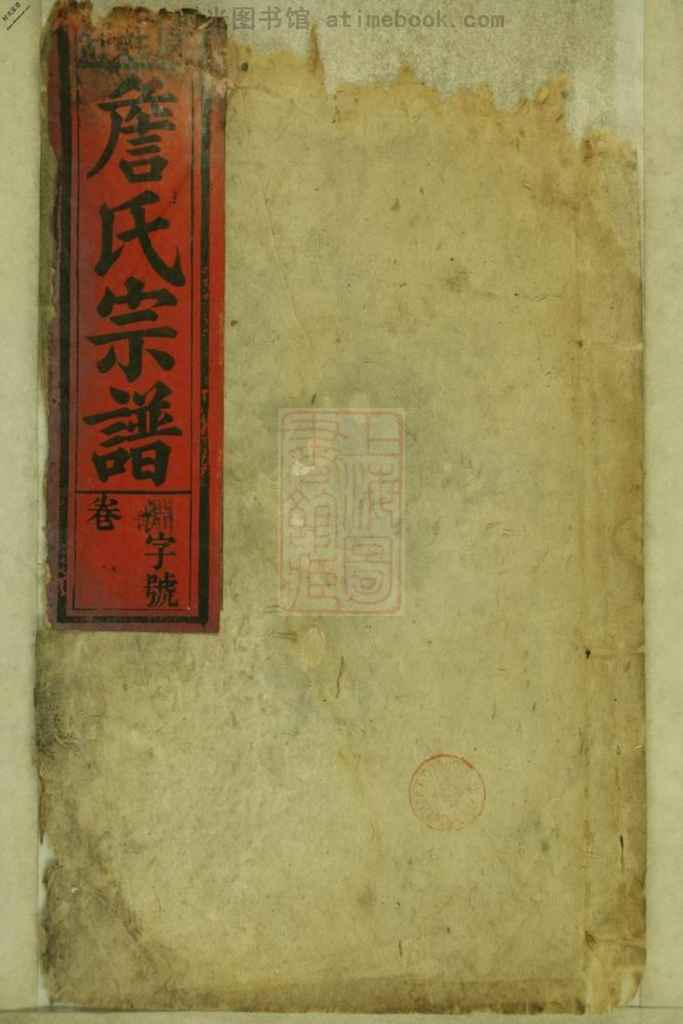 时光图书馆 atimebook.com
詹氏宗譜
卷
字號
上海圖
書館藏